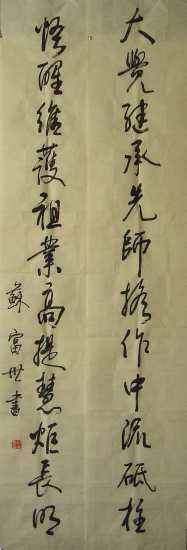 大覺繼承先師擔作中流砥柱
悟醒維護祖業高提慧炬長明
蘇富世書